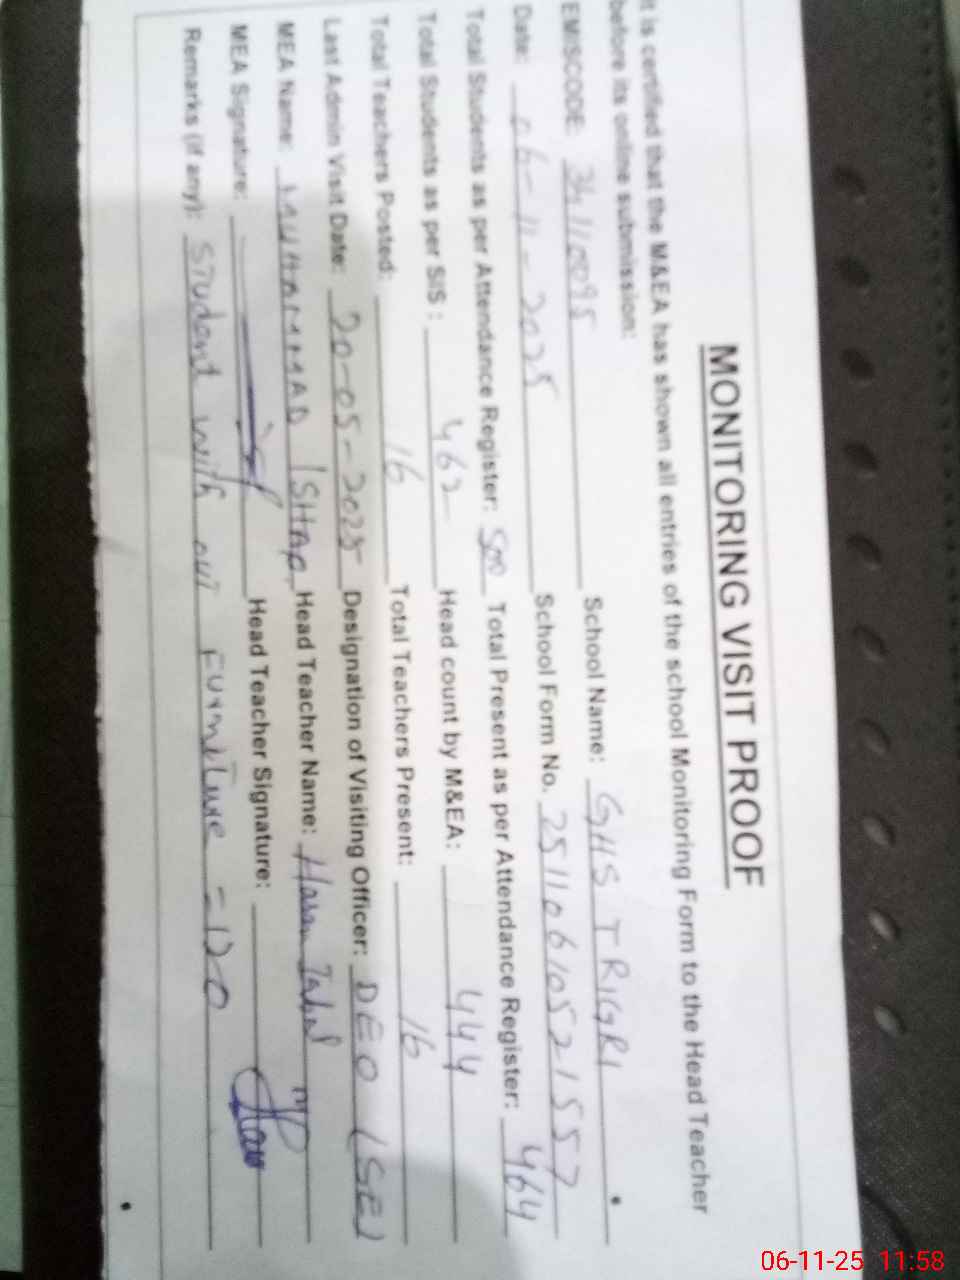 MONITORING VISIT PROOF
It is certified that the M&EA has shown all entries of the school Monitoring Form to the Head Teacher
before its online submission:
EMISCODE: 34110095 School Name: GHS TRIGRI
Date: 06-11-2025 School Form No. 25110610521557
Total Students as per Attendance Register: 500 Total Present as per Attendance Register: 464
Total Students as per SIS: 462 Head count by M&EA: 444
Total Teachers Posted: 16 Total Teachers Present: 16
Last Admin Visit Date: 20-05-2025 Designation of Visiting Officer: DEO (SE)
MEA Name: MUHAMMAD ISHAQ Head Teacher Name: Hasan
MEA Signature: Head Teacher Signature:
Remarks (if any): Student with out Furniture = 120
06-11-25 11:58